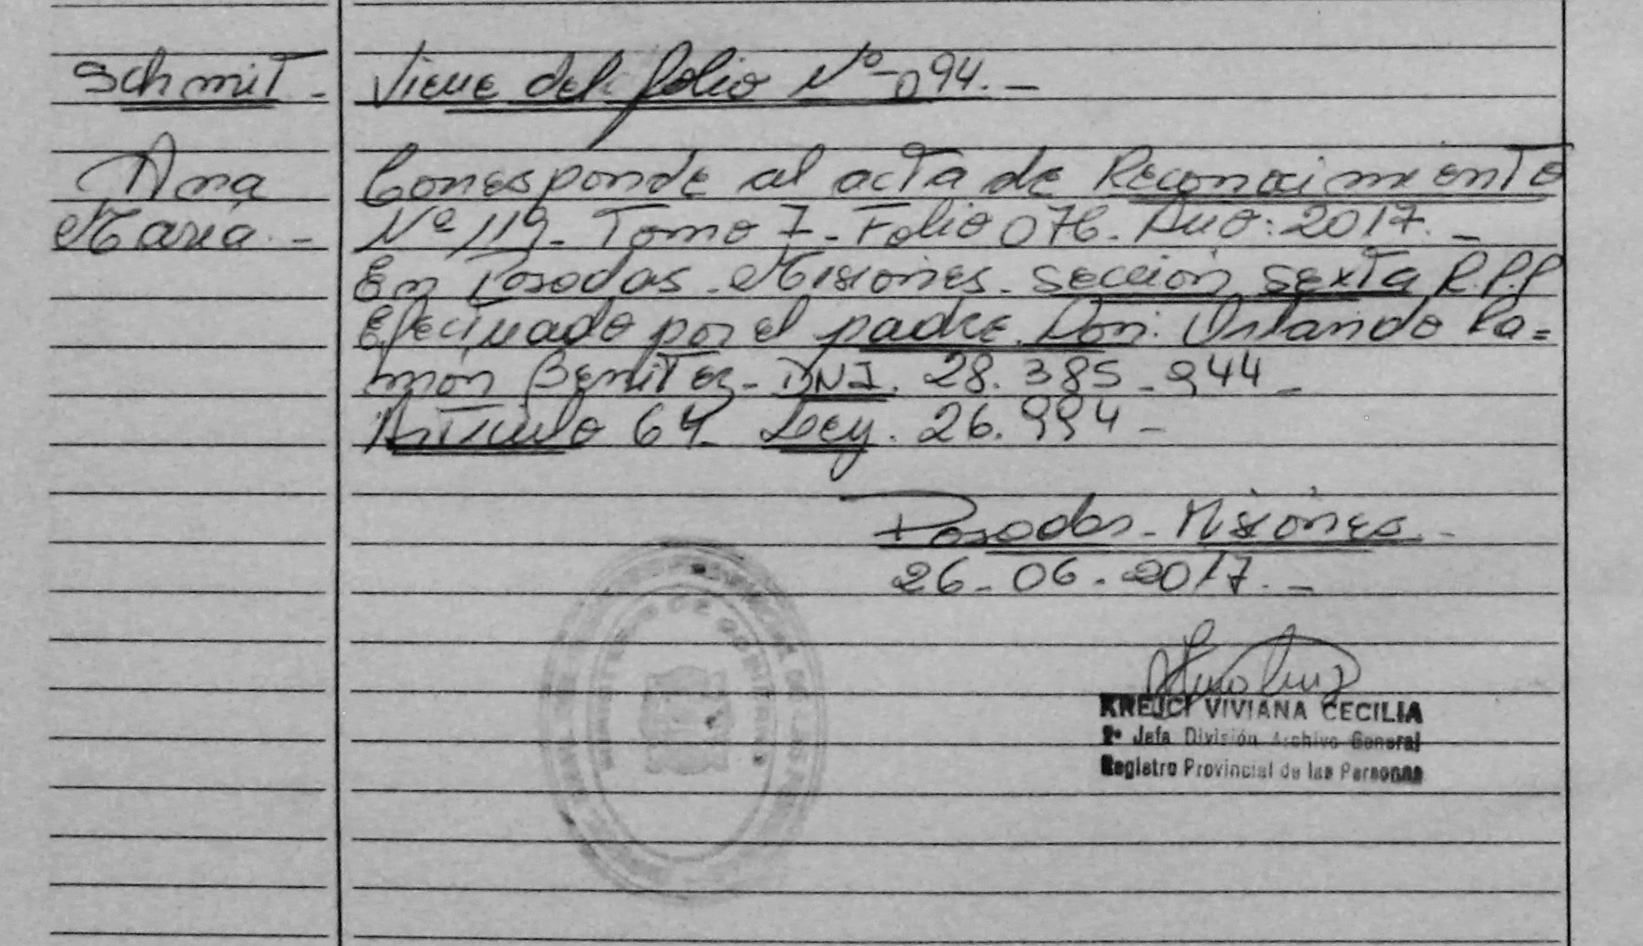 Schmit. Viene del folio Nº 094.-
Ana Corresponde al acta de Reconocimiento
María.- Nº 119- Tomo 7- Folio 076. Año: 2017.-
En Posadas. Misiones. Sección Sexta R.P.P
Efectuado por el padre. Don: Orlando Ra=
món Benitez- DNI. 28.385-944-
Artículo 64 Ley. 26.994-
Posadas- Misiones.-
26-06-2017.-
KREJCI VIVIANA CECILIA
2º Jefa División Archivo General
Registro Provincial de las Personas